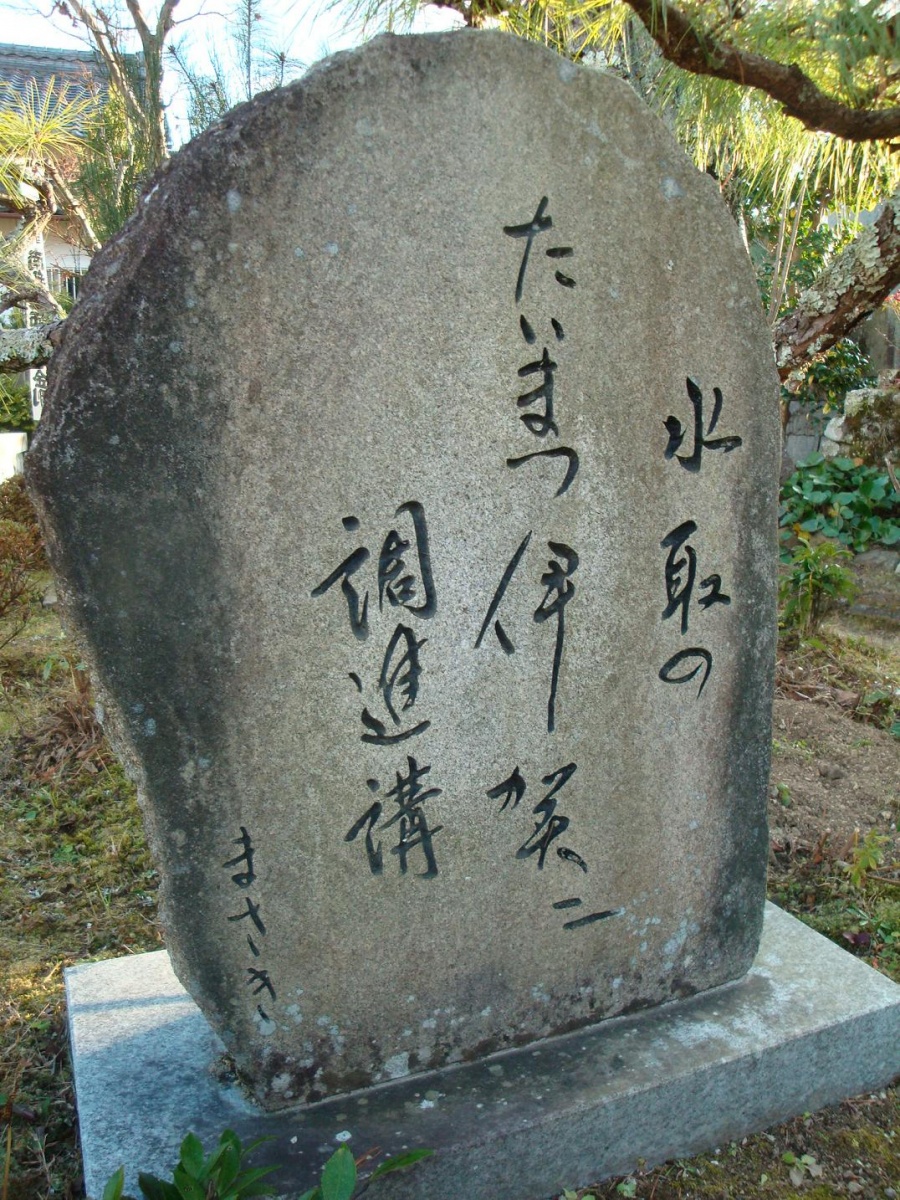 水取の
たいまつ伊賀ニ
調進講
まさき